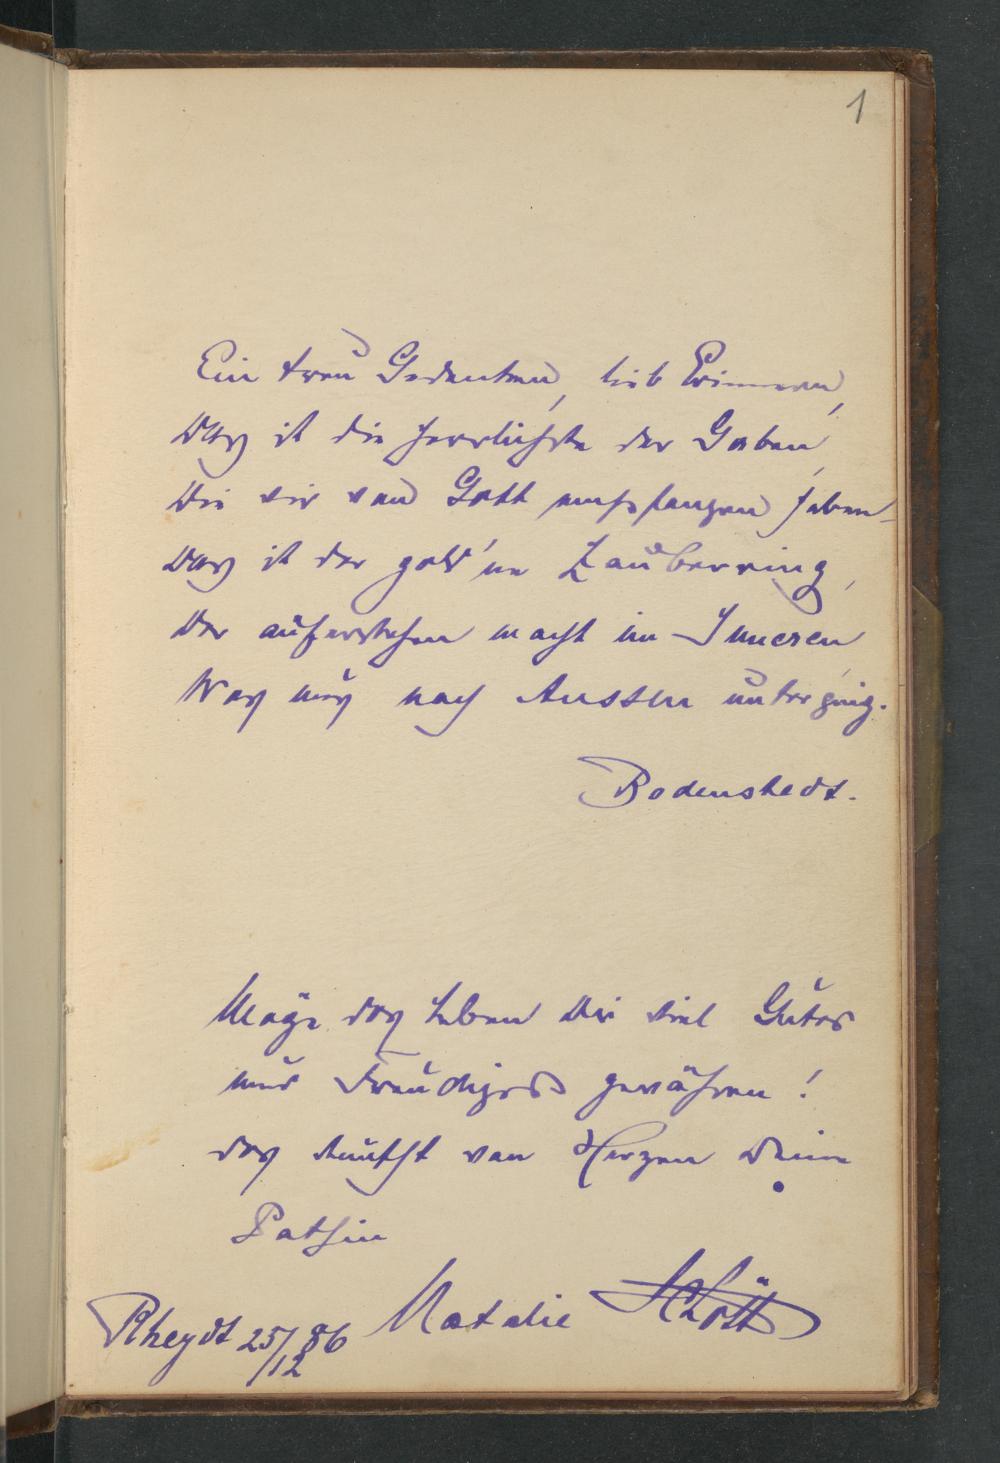 1
Ein treu Gedenken, lieb Erinnern,
Das ist die herrlichste der Gaben,
Die wir von Gott empfangen haben –
Das ist der gold'ne Zauberring,
Der auferstehen macht im Inneren,
Was uns nach Aussen unterging.
Bodenstedt.
Möge das Leben Dir viel Gutes
und Freudiges gewähren!
das wünscht von Herzen Deine
Pathin
Natalie Schött
Rheydt 25/12 86